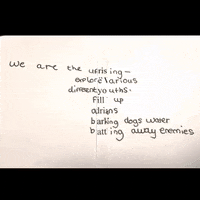 we are the uprising -
explore various
different youths.
fill up
barking dogs water
batting away enemies